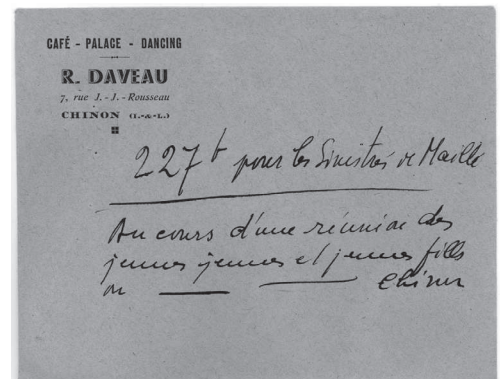 CAFÉ - PALACE - DANCING
R. DAVEAU
7, rue J.-J.-Rousseau
CHINON (I.-&-L.)
227 f pour les Sinistrés de Maillé
Au cours d'une réunion des
jeunes jeunes et jeunes filles
Chinon